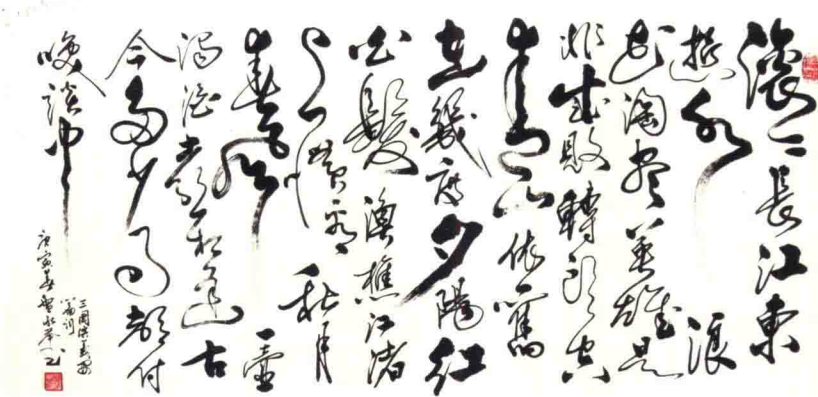 滚〻長江東
逝水浪
花淘盡英雄是
非成敗轉頭空
青山依舊
在幾度夕陽紅
白髮漁樵江渚
上慣看秋月
春風一壺
濁酒喜相逢古
今多少事都付
咲談中
三國演義開
篇詞
庚寅春